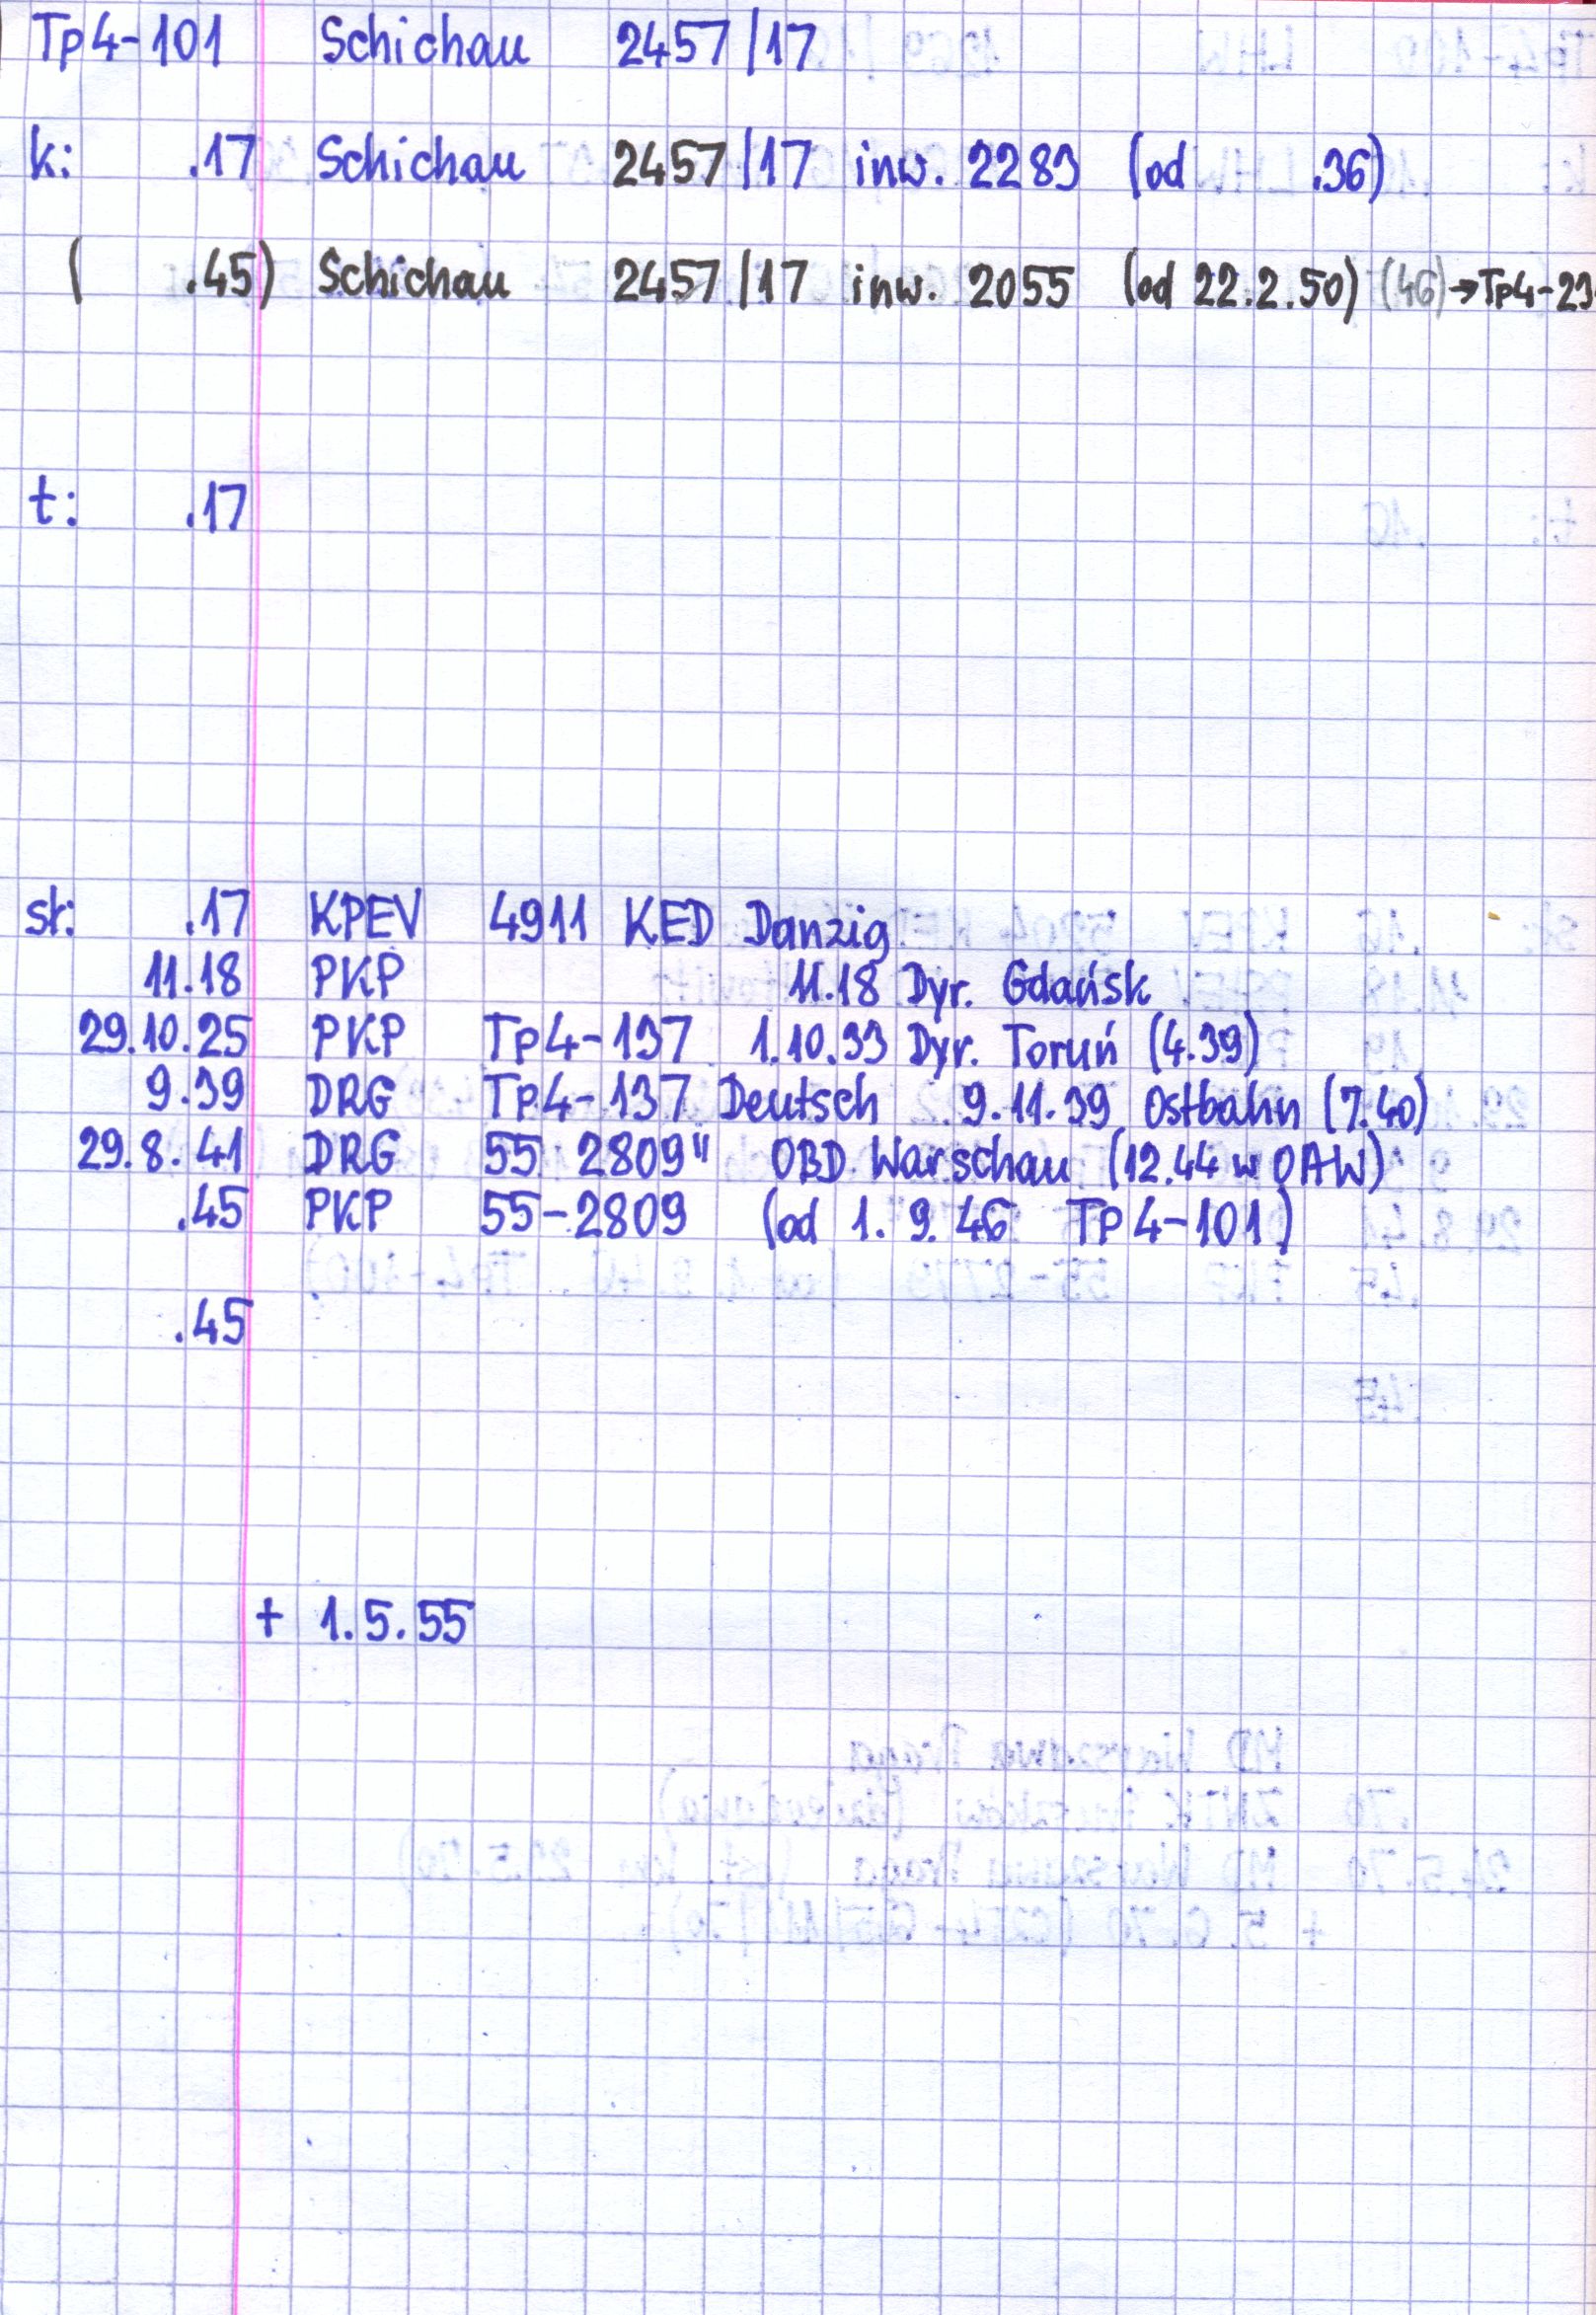 Tp4-101 Schichau 2457/17
k: .17 Schichau 2457/17 inw. 2283 (od .36)
( .45) Schichau 2457/17 inw. 2055 (od 22.2.50) (46)→Tp4-29
t: .17
st: .17 KPEV 4911 KED Danzig
11.18 PKP 11.18 Dyr. Gdańsk
29.10.25 PKP Tp4-137 1.10.33 Dyr. Toruń (4.39)
9.39 DRG Tp4-137 Deutsch 9.11.39 Ostbahn (7.40)
29.8.41 DRG 55 2809" OBD Warschau (12.44 w OAW)
.45 PKP 55-2809 (od 1.9.46 Tp4-101)
.45
+ 1.5.55